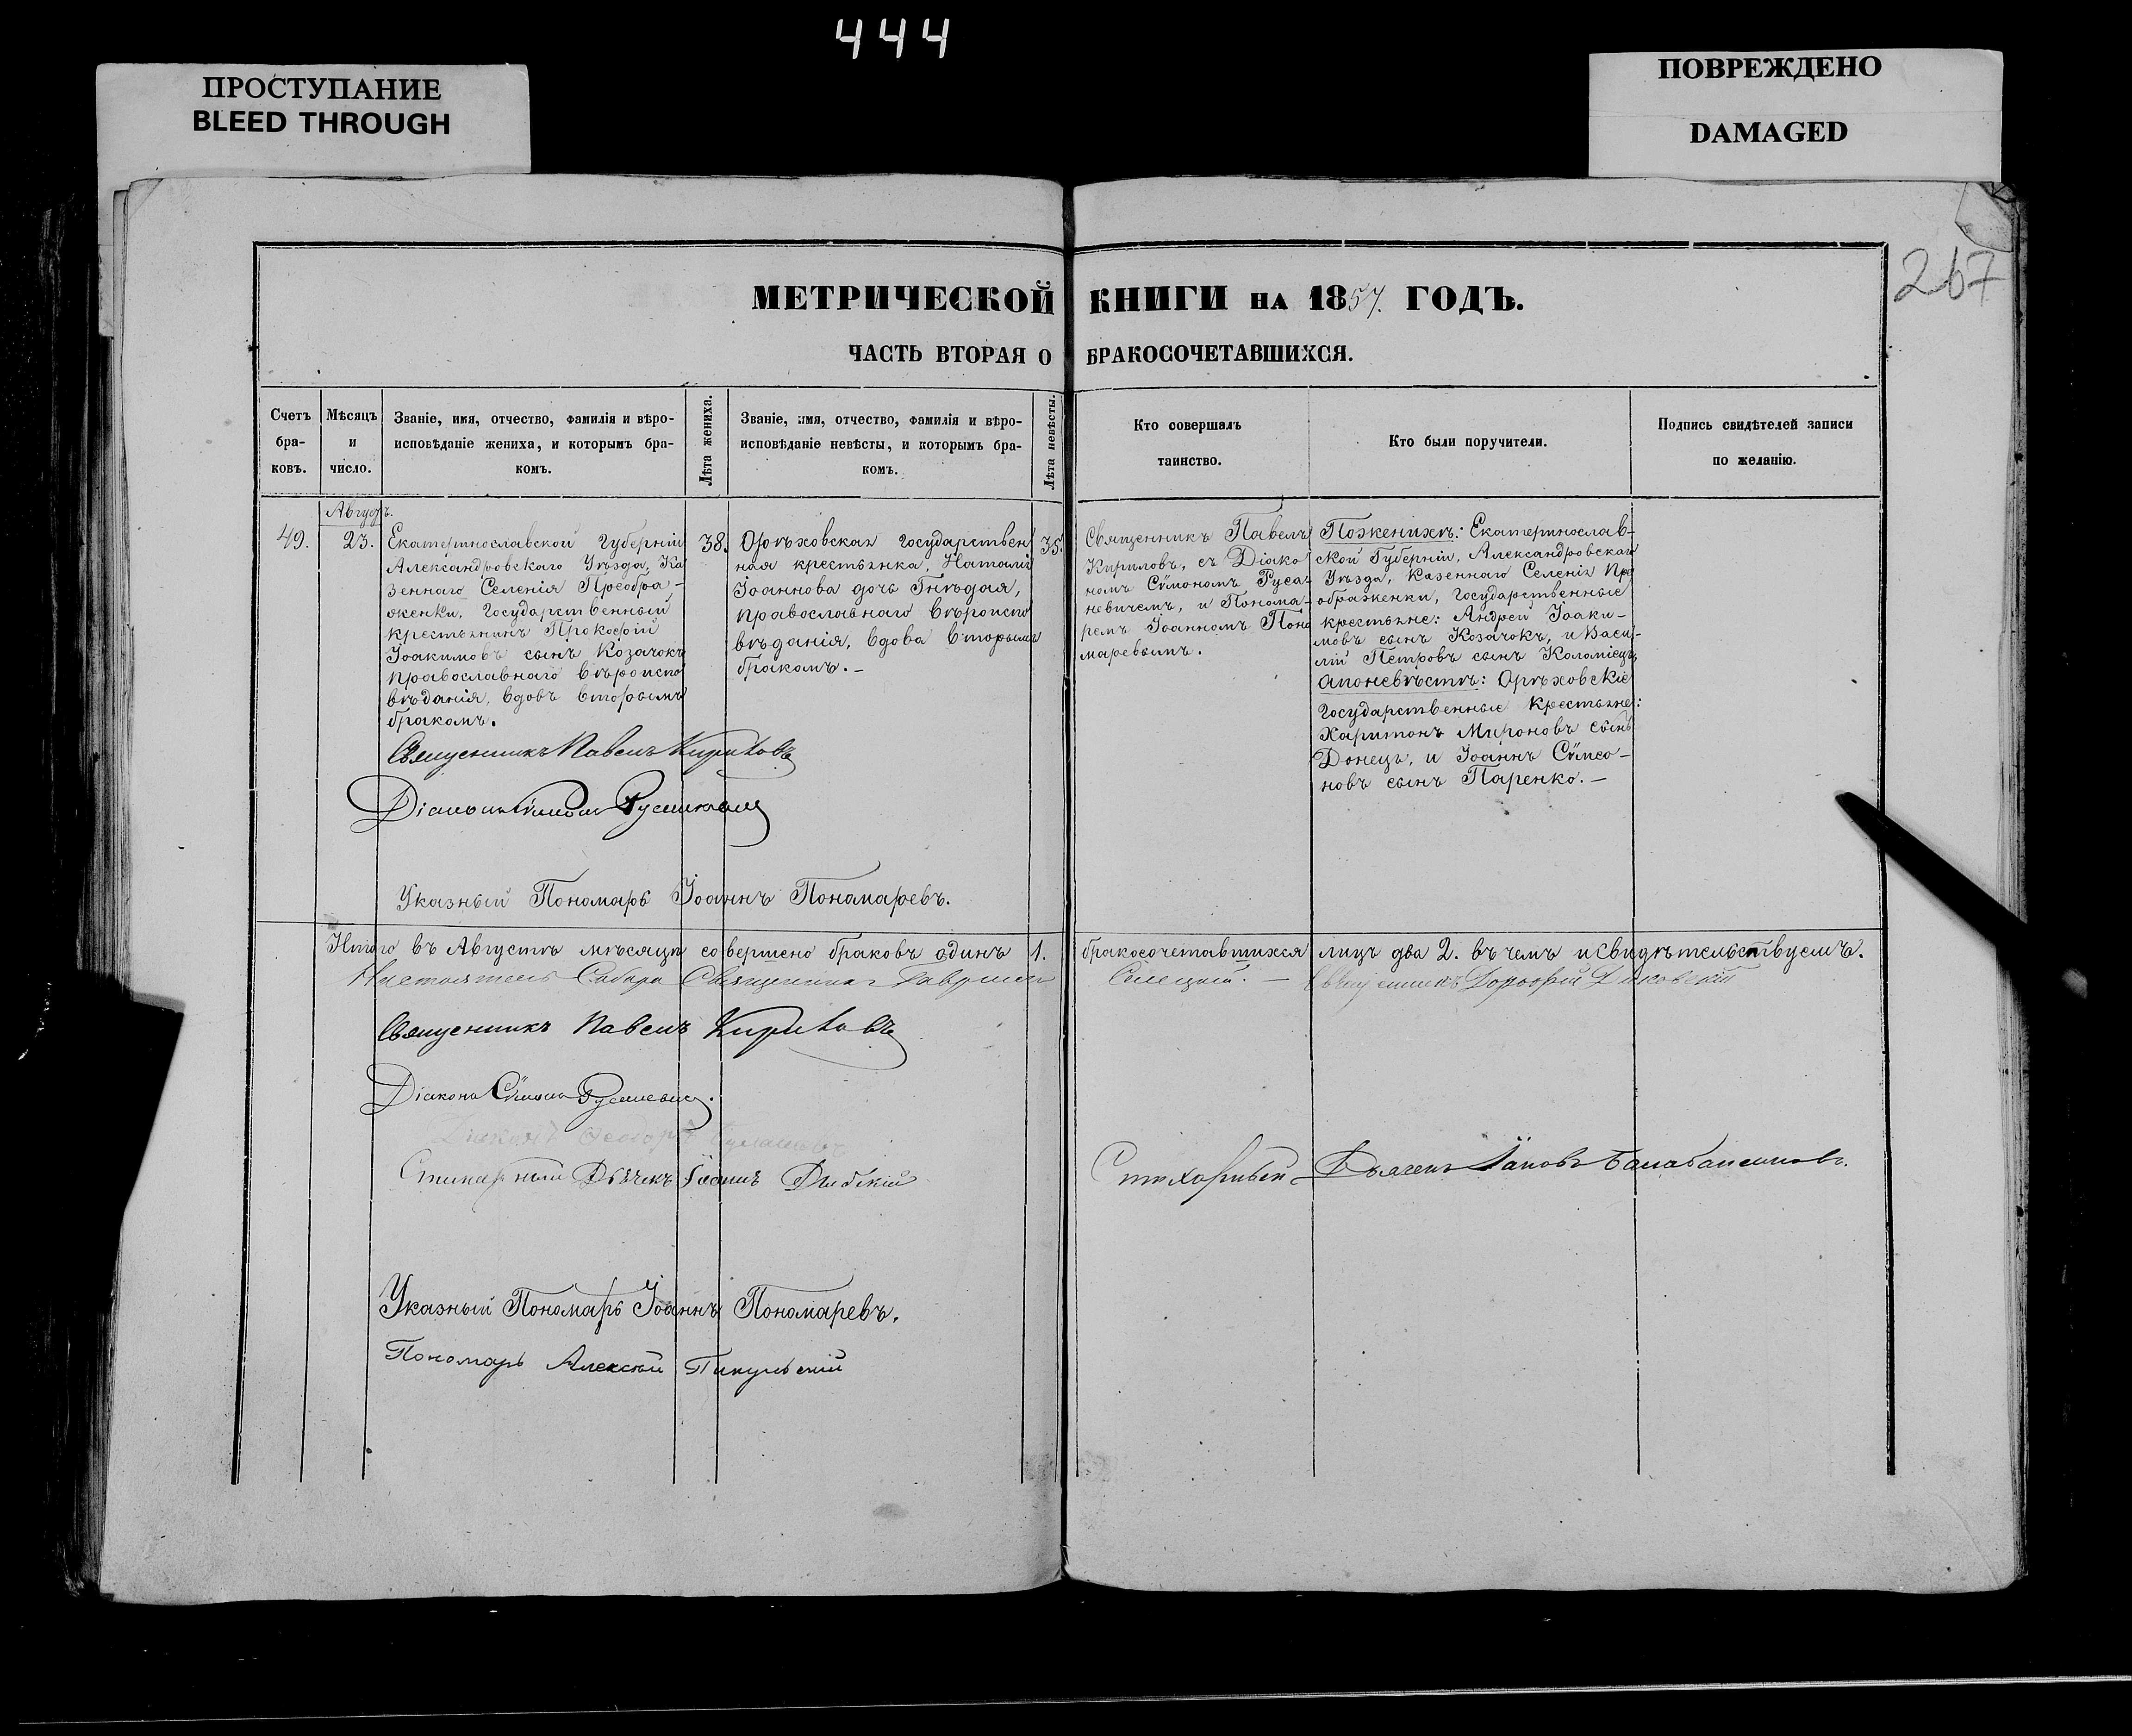 444
ПРОСТУПАНИЕ
BLEED THROUGH
ПОВРЕЖДЕНО
DAMAGED
267
МЕТРИЧЕСКОЙ КНИГИ НА 1857. ГОДЪ.
ЧАСТЬ ВТОРАЯ О БРАКОСОЧЕТАВШИХСЯ.
Счетъ
бра-
ковъ.
Мѣсяцъ
и
число.
Званіе, имя, отчество, фамилія и вѣро-
исповѣданіе жениха, и которымъ бра-
комъ.
Лѣта жениха.
Званіе, имя, отчество, фамилія и вѣро-
исповѣданіе невѣсты, и которымъ бра-
комъ.
Лѣта невѣсты.
Кто совершалъ
таинство.
Кто были поручители.
Подпись свидѣтелей записи
по желанію.
49.
Август.
23.
Екатеринославской Губерніи
Александровскаго Уѣзда, Ка
зеннаго Селенія Преобра-
женки, Государственный
крестьянинъ Прокофій
Іоакимовъ сынъ Козачокъ
православнаго вѣроиспо
вѣданія, вдовъ вторымъ
бракомъ.
38.
Орѣховская Государствен
ная крестьянка, Наталія
Іоаннова дочь Гнѣдая,
православнаго вѣроиспо
вѣданія, вдова вторымъ
бракомъ.-
35.
Священникъ Павелъ
Кириловъ, съ Діако
номъ Сѵмономъ Руса-
невичемъ, и Понома-
ремъ Іоанномъ Поно
маревымъ.
Поженихѣ: Екатеринослав-
ской Губерніи, Александровскаго
Уѣзда, Казеннаго Селенія Пре
ображенки, Государственные
крестьяне: Андрей Іоаки-
мовъ сынъ Козачокъ, и Васи-
лій Петровъ сынъ Коломіецъ,
апоневѣстѣ: Орѣховскіе
Государственные крестьяне:
Харитонъ Мироновъ сынъ
Донецъ, и Іоаннъ Сѵмео-
новъ сынъ Паренко.-
Священникъ Павелъ Кириловъ
Діаконъ Сѵмонъ Русаневичъ
Указный Пономарь Іоаннъ Пономаревъ.
Итого въ Августѣ мѣсяцѣ совершено браковъ одинъ 1. бракосочетавшихся лицъ два 2. въ чемъ исвидѣтельствуемъ.
Настоятель Собора Священникъ Гавріилъ
Священникъ Павелъ Кириловъ
Діаконъ Сѵмонъ Русаневичъ.
Діаконъ Ѳеодоръ
Стихарный Дьячекъ Іоаннъ
Стихарный Дьячекъ Іаковъ
Указный Пономарь Іоаннъ Пономаревъ.
Пономарь Алексѣй Пикульскій